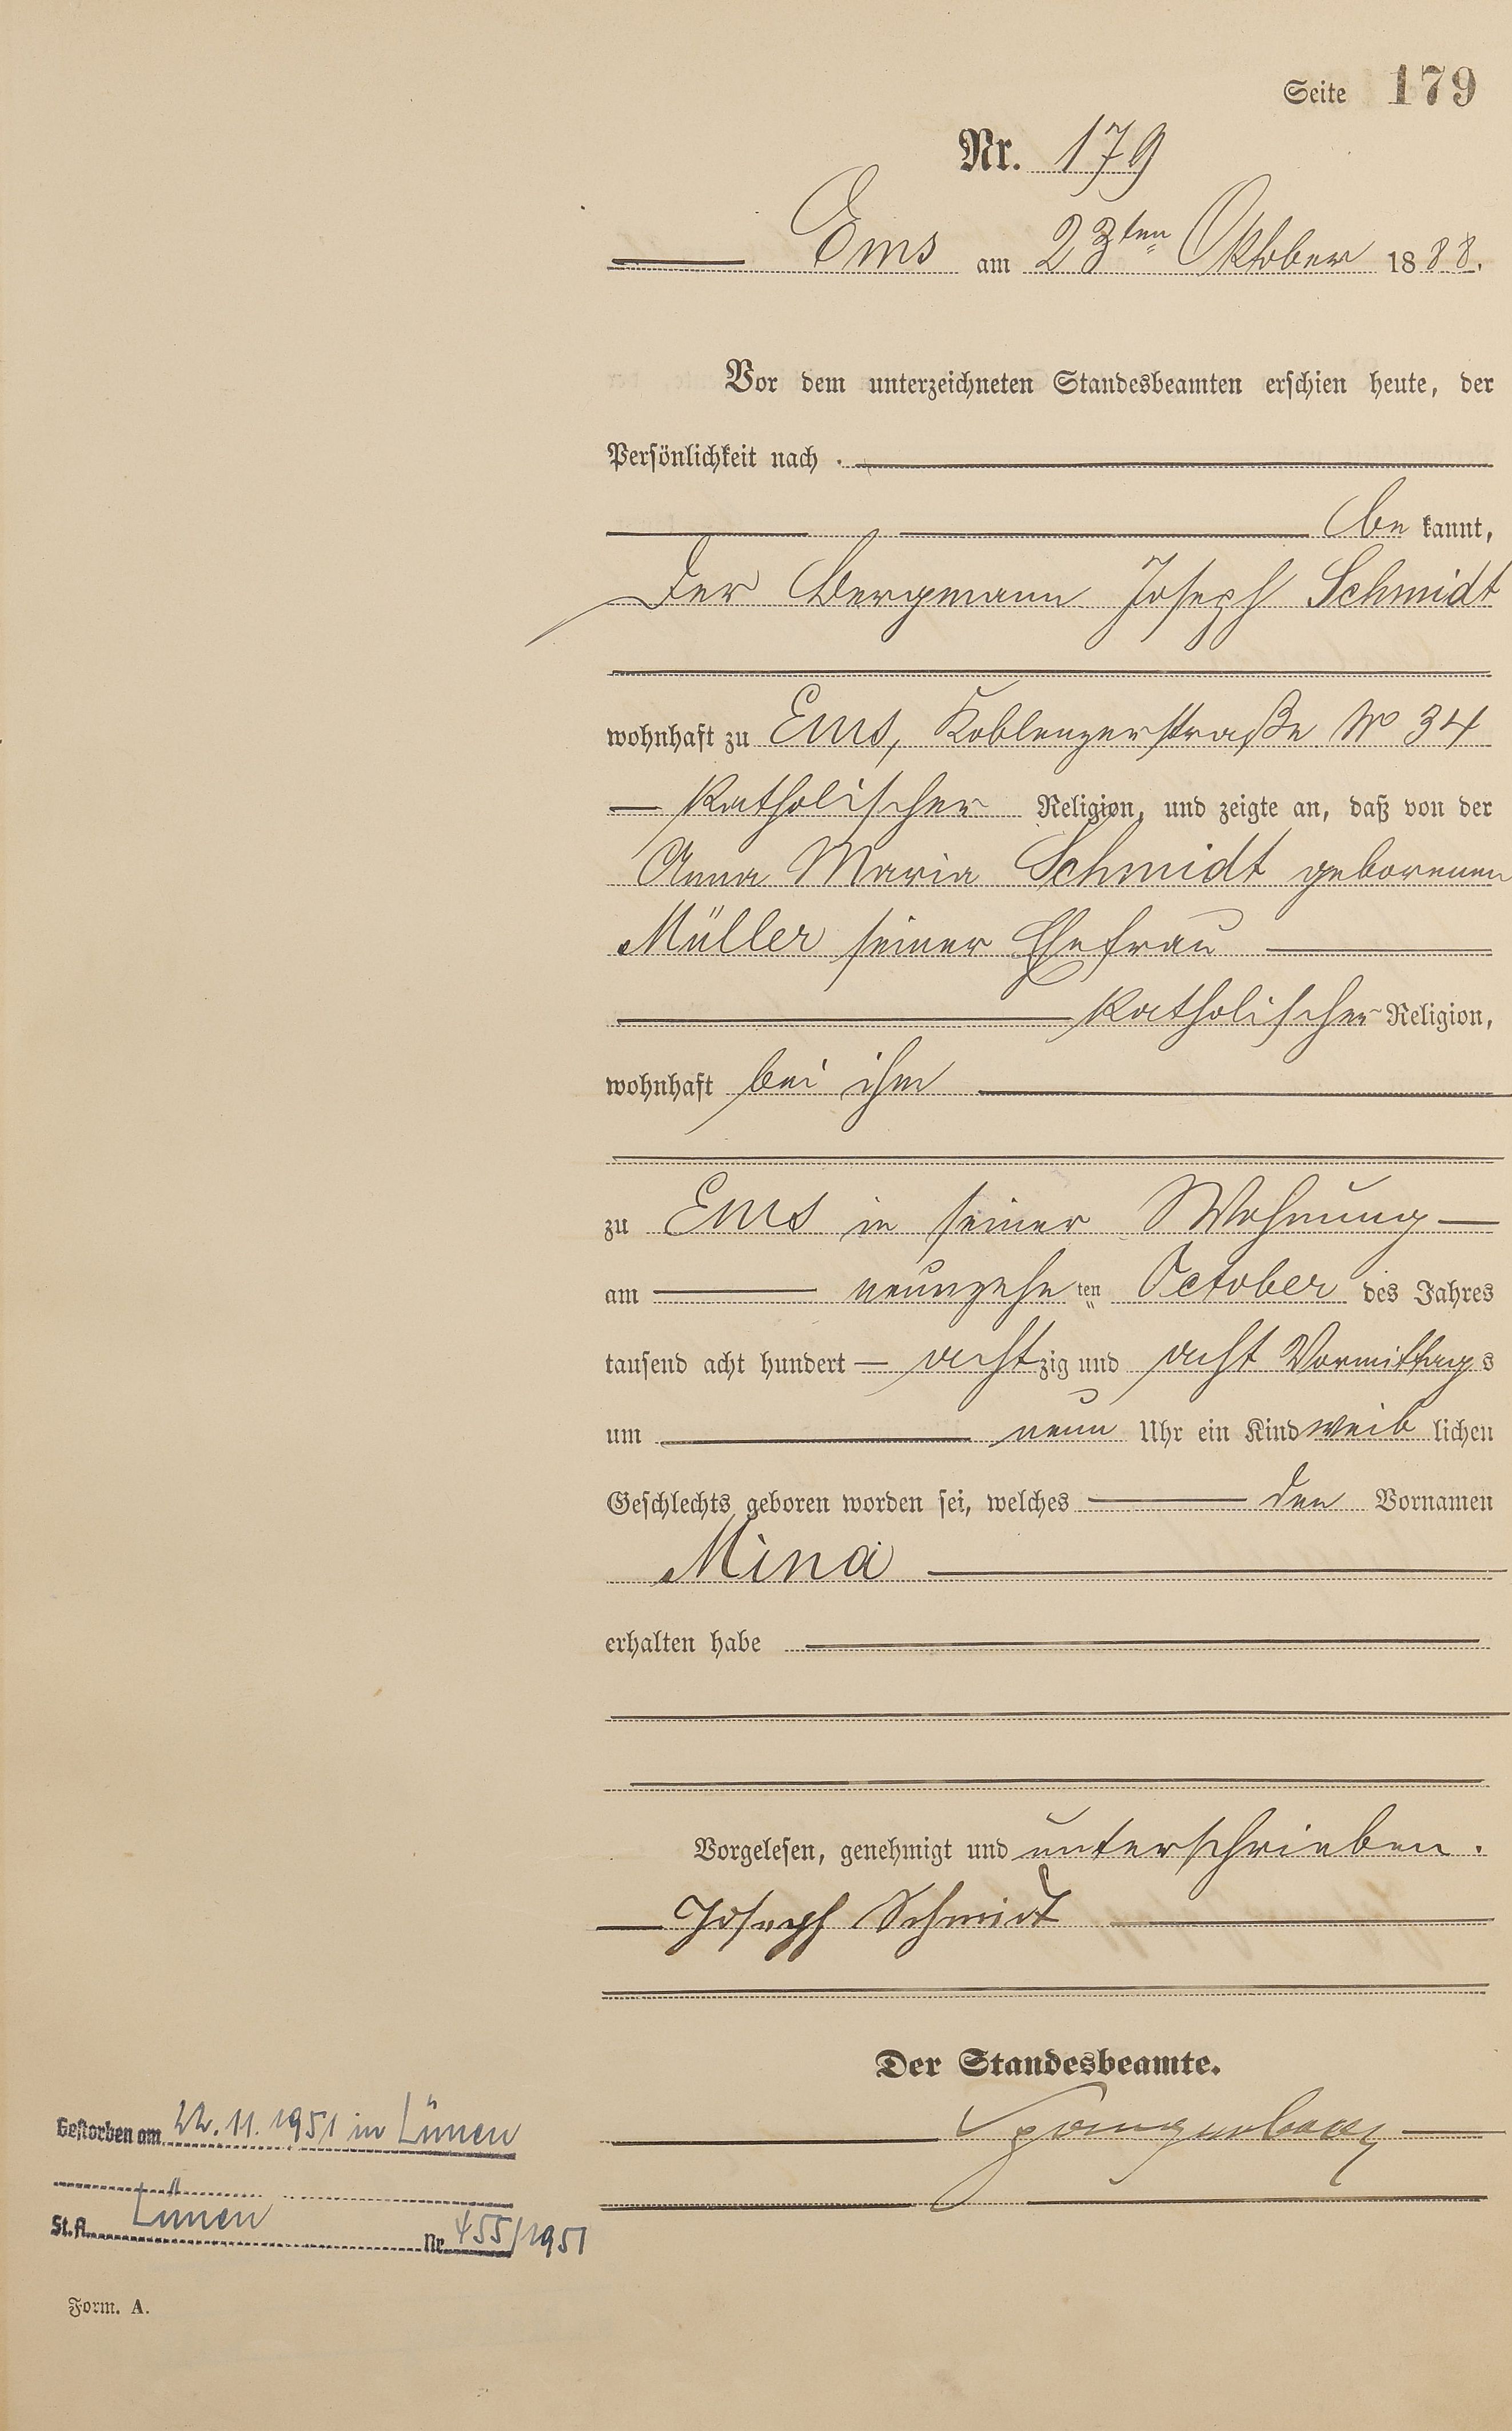 Seite 179
Nr. 179
Ems am 23ten Oktober 1888.
Vor dem unterzeichneten Standesbeamten erschien heute, der
Persönlichkeit nach
bekannt,
Der Bergmann Joseph Schmidt
wohnhaft zu Ems, Koblenzerstraße No 34
katholischer Religion, und zeigte an, daß von der
Anna Maria Schmidt geborenen
Müller seiner Ehefrau
katholischer Religion,
wohnhaft bei ihm
zu Ems in seiner Wohnung
am neunzehnten October des Jahres
tausend acht hundert achtzig und acht Vormittags
um neun Uhr ein Kind weiblichen
Geschlechts geboren worden sei, welches den Vornamen
Mina
erhalten habe
Vorgelesen, genehmigt und unterschrieben.
Joseph Schmidt
Der Standesbeamte.
Spangenberg
Gestorben am 22.11.1951 in Lünen
St.A. Lünen Nr. 455/1951
Form. A.